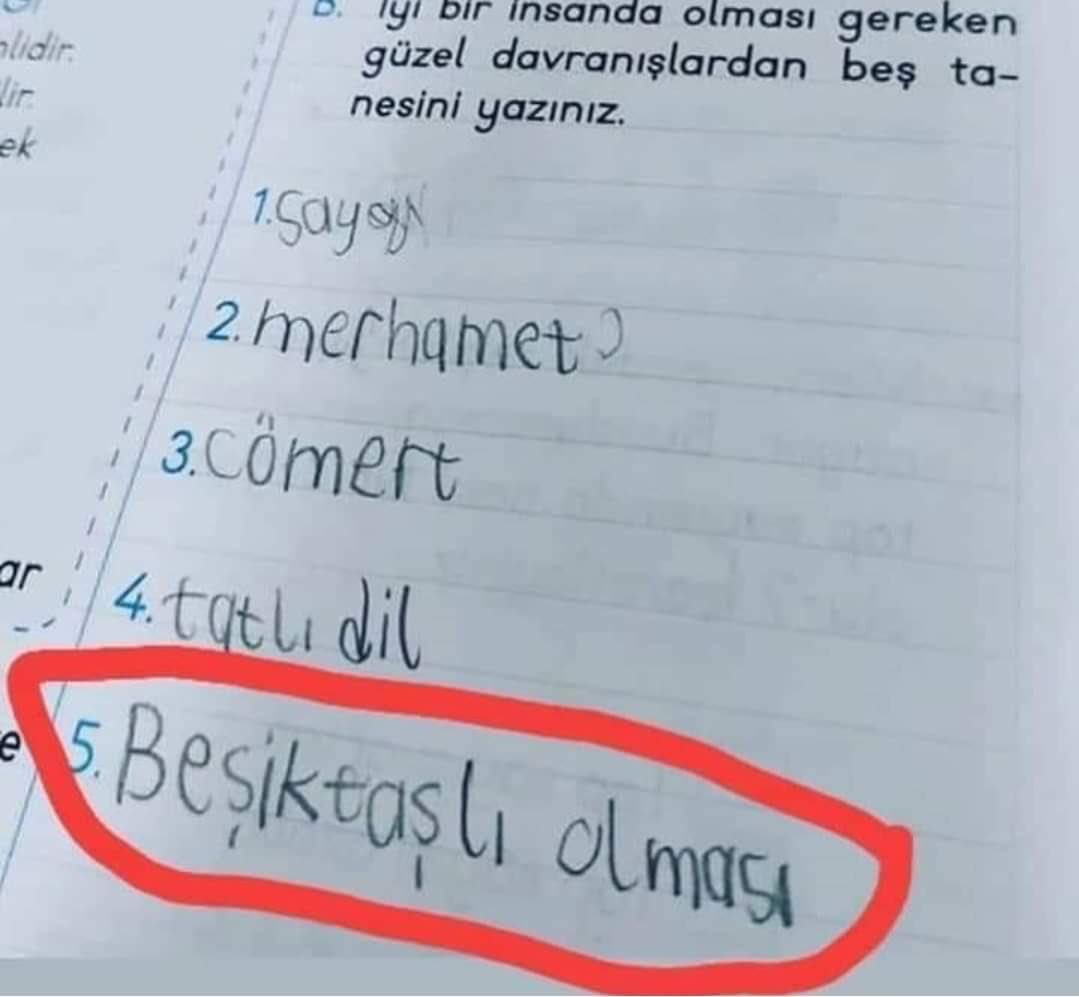 B. İyi bir insanda olması gereken
güzel davranışlardan beş ta-
nesini yazınız.
lidir.
lir.
ek
1.
2. merhamet
3. cömert
4. tatlı dil
ar
e
5. Beşiktaşlı olması